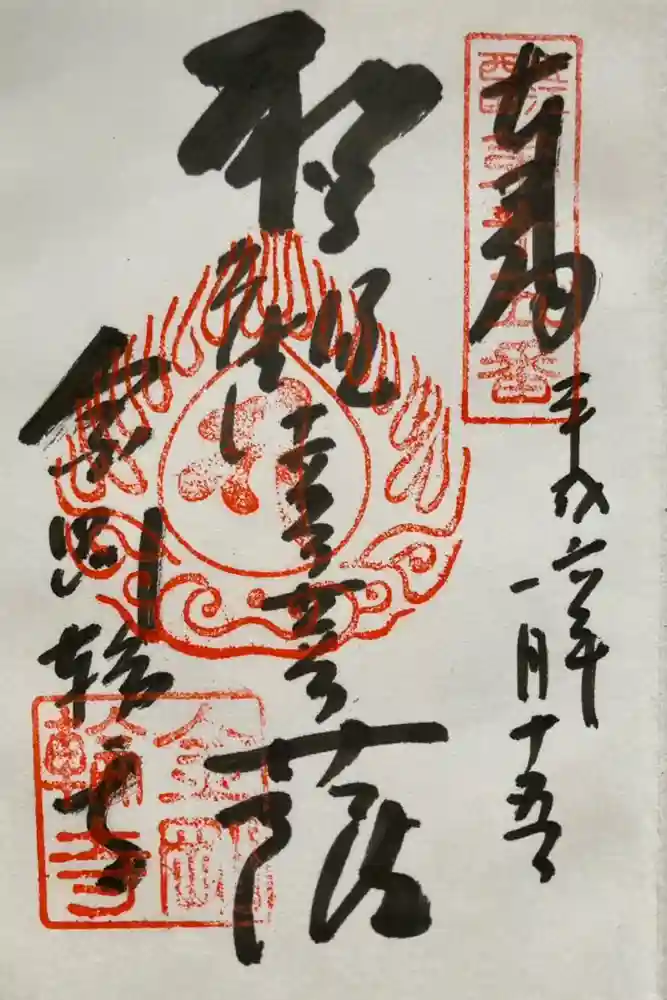 奉拝
平成六年
一月十五日
聖観世音菩薩
金剛輪寺
金剛
輪寺